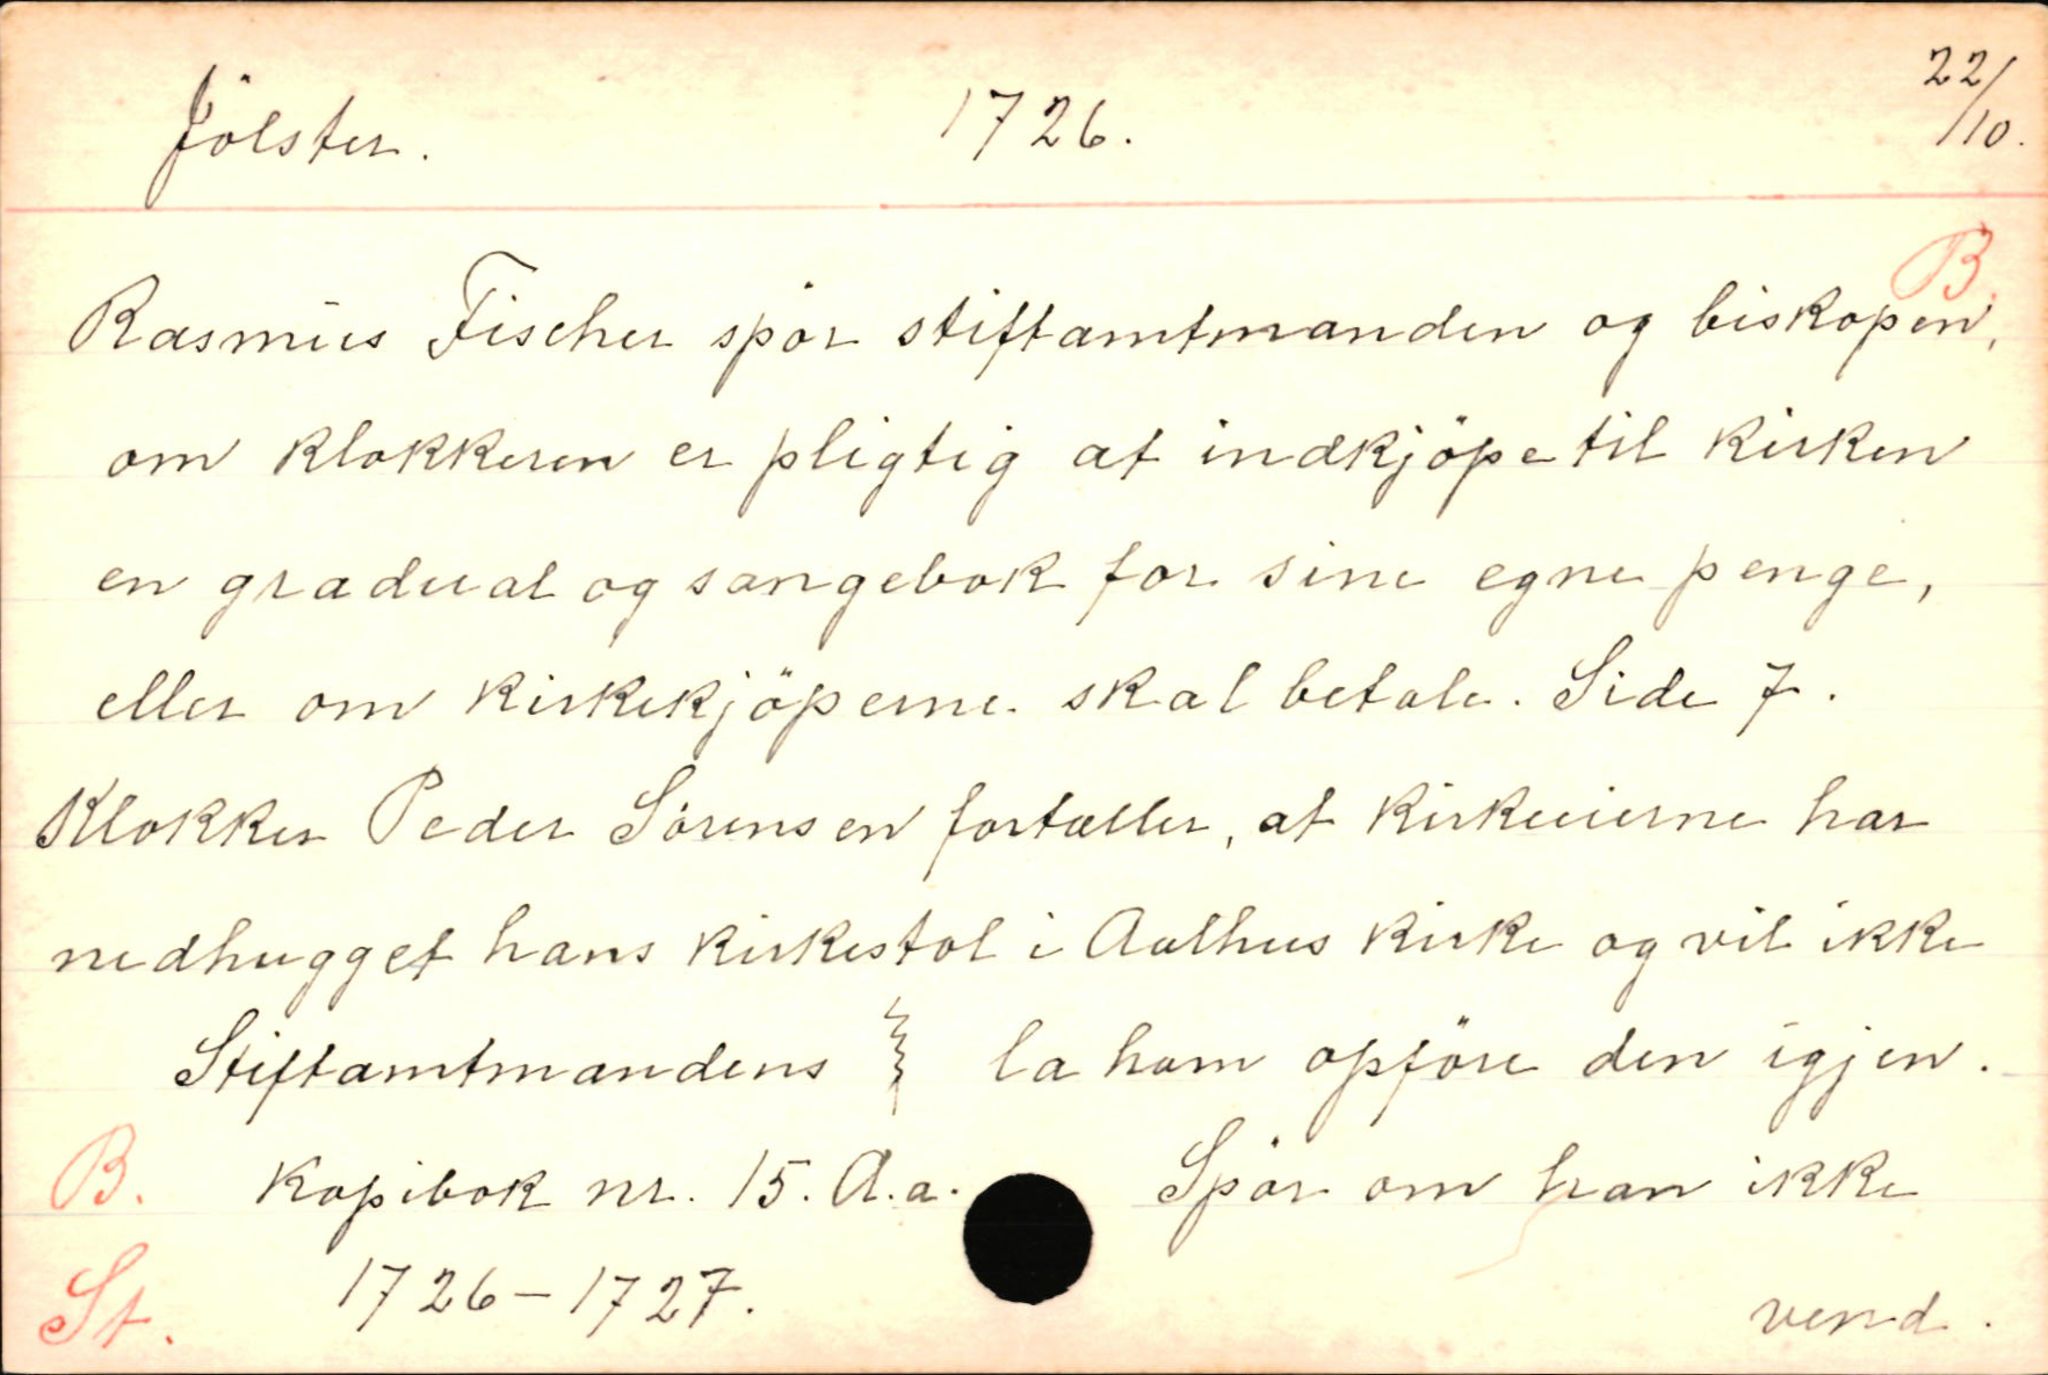 Jölster. 1726. 22/10.
B.
Rasmus Fischer spör stiftamtmanden og biskopen,
om klokkeren er pligtig at indkjöpe til kirken
en gradual og sangebok for sine egne penge,
eller om kirkekjöperne skal betale. Side 7.
Klokker Peder Sörensen fortæller, at kirkeeierne har
nedhugget hans kirkestol i Aalhus kirke og vil ikke
la ham opföre den igjen.
Spör om han ikke
vend.
Stiftamtmandens
B. Kopibok nr. 15. A.a.
St. 1726-1727.